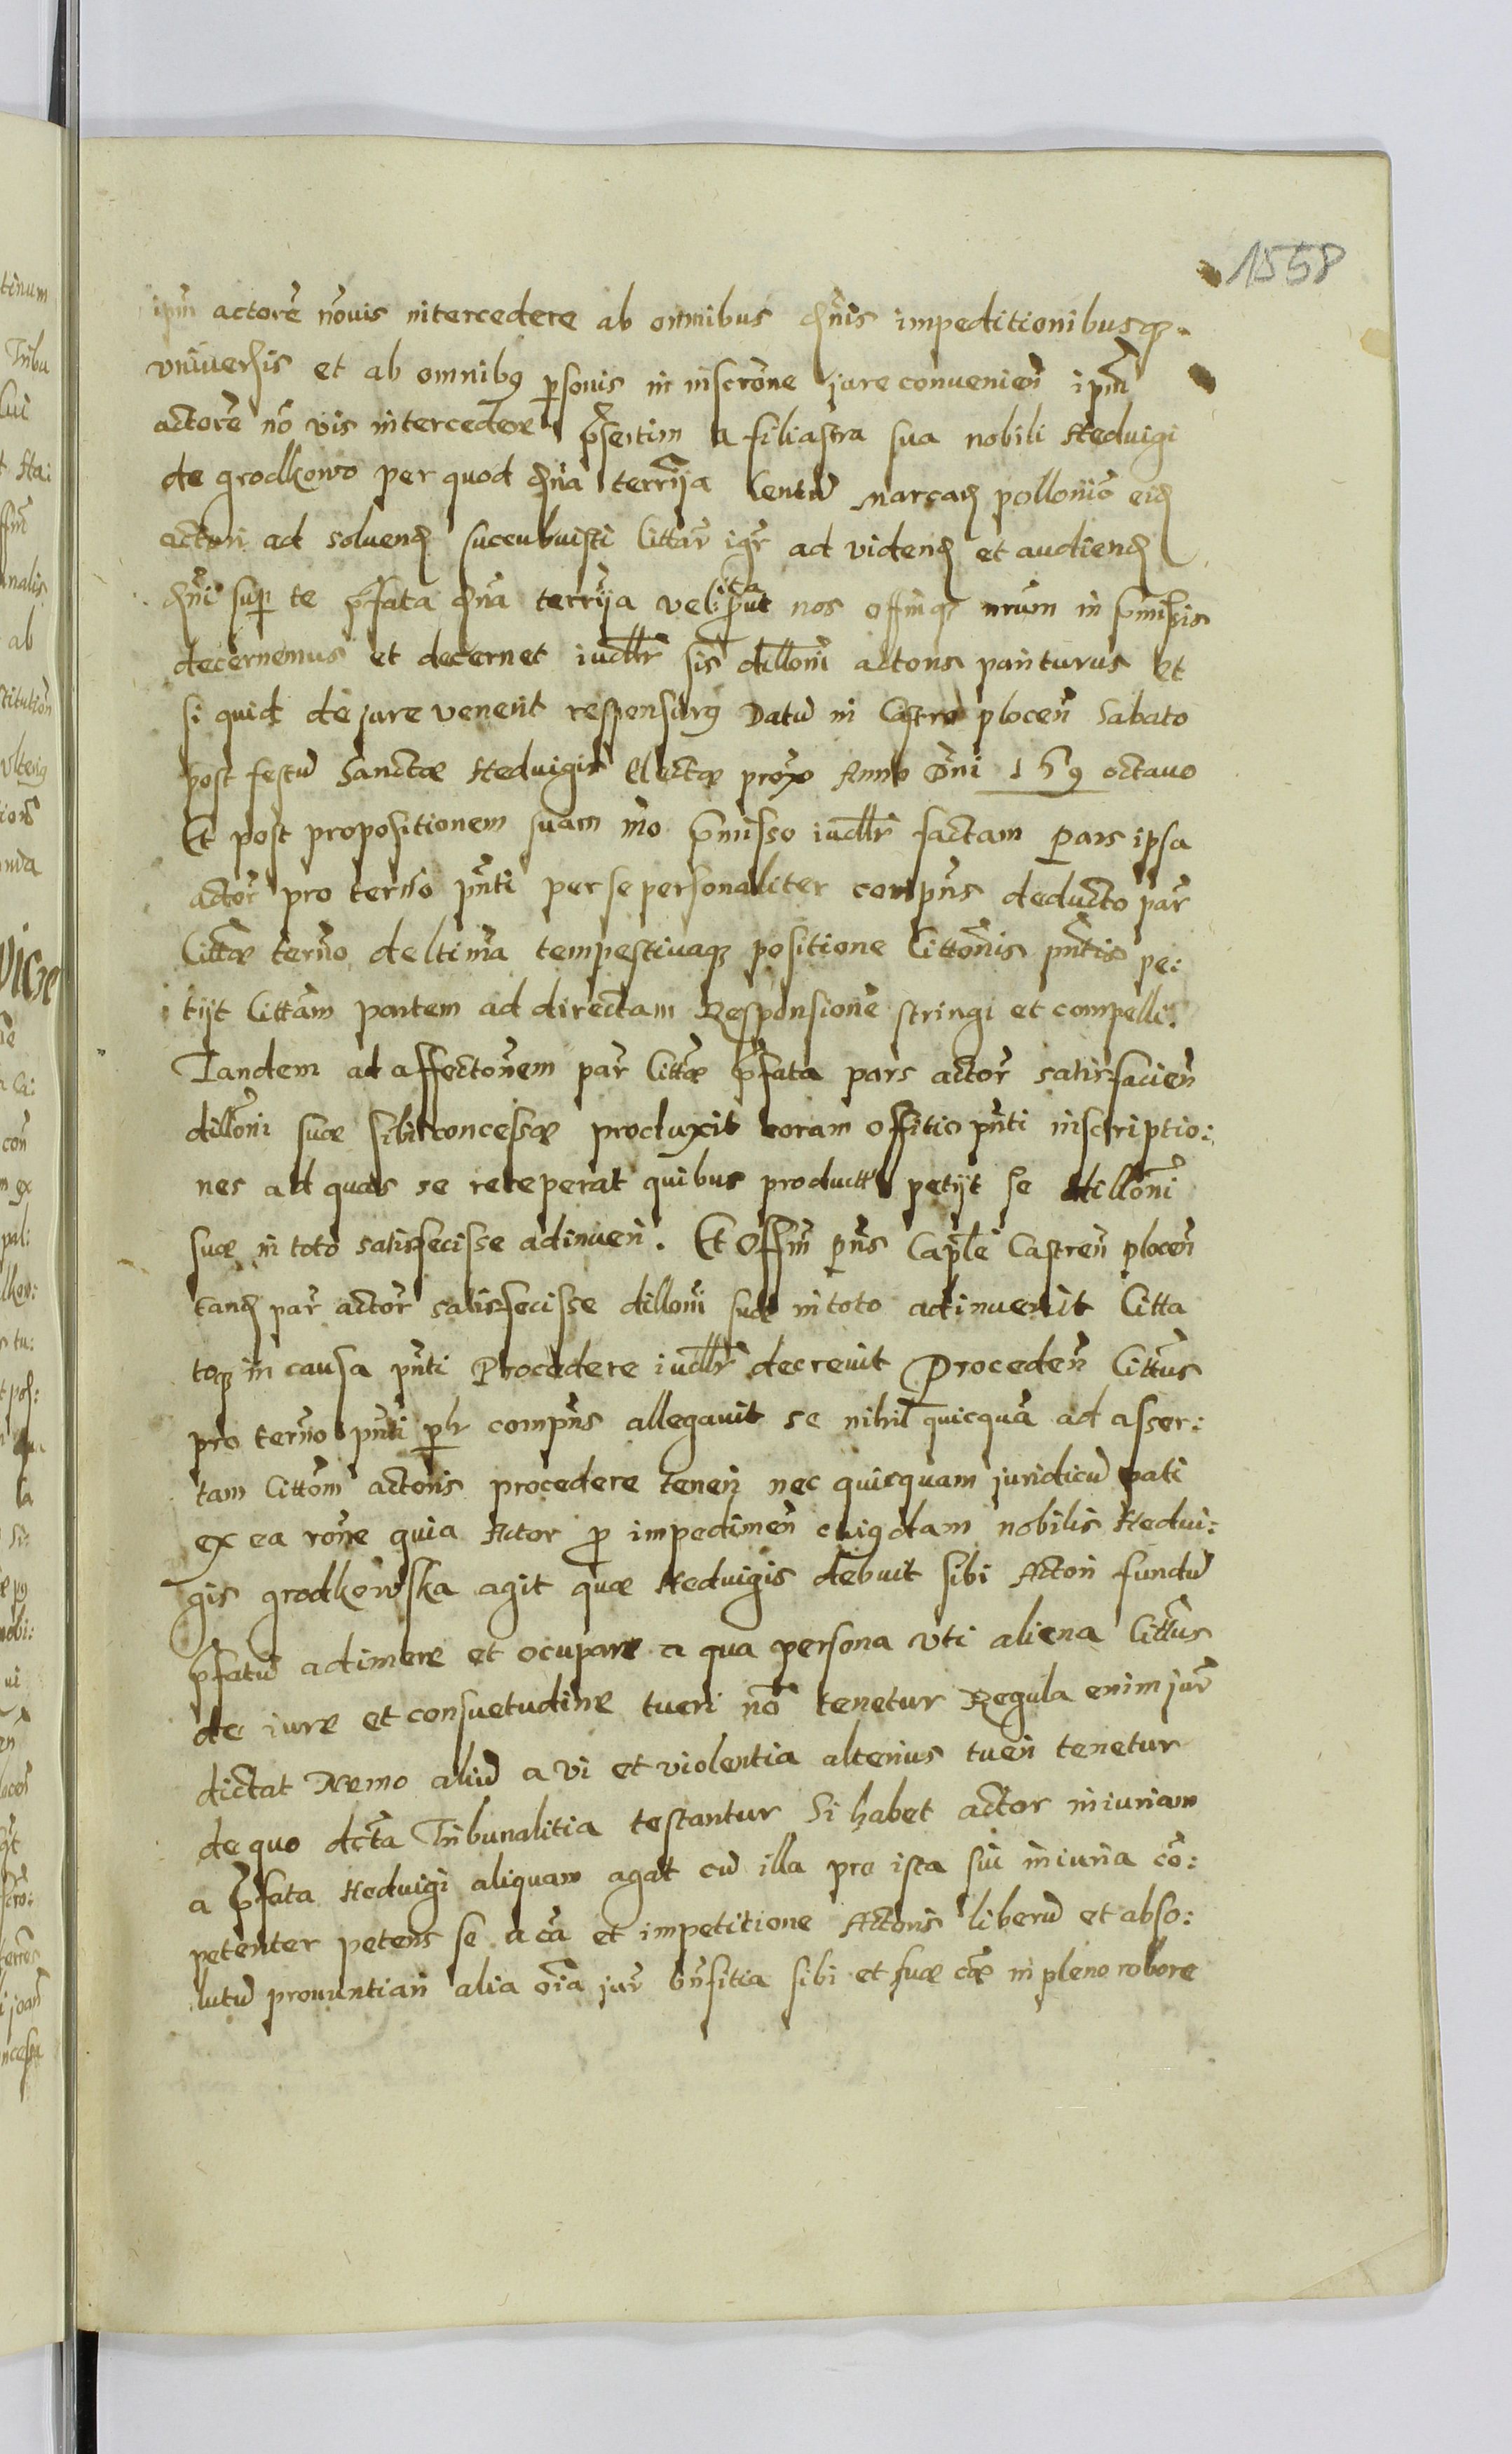 1558
ipm̃ actorẽ nõ vis intercedere ab omnibus q̃nis impeditionibusq3
vniuersis et ab omnibq personis in inscrõne jure convenieñ ipm̃
actorẽ nõ vis intercedere p̃sertim a filiastra sua nobili Heduigi
de grodkowo per quod q̃na terrĩja Centũ marcaꝝ pollonic̃ eid
actori ad soluend succubuisti Cittar̃ igr̃ ad videnꝺ et audiend
q̃ni sup te p̃fata q̃na terrĩja vel ita prout nos offmq3 nrũm in p̃missis
decernemus et decernet iudllr̃ sis dillonĩ actoris pariturus et
si quid de jure venerit responsurꝰ Datũ in Castro ploceñ Sabato
post festũ Sanctæ Heduigis Electæ prox̃ Anno Dñi 159 octauo
Et post propositionem suam mõ p̃misso iudllr̃ factam Pars ipsa
actor̃ pro terño p̃nti per se personaliter comp̃ns deducto par̃
Cittæ terño deltim̃a tempestivaq3 positione Cittõnis p̃ntis pe:
tijt Cittãm partem ad directam Responsionẽ stringi et compelli.
Tandem ad affectõnem par̃ Cittæ p̃fata pars actor̃ satisfacieñ
dillonĩ suæ sibi concessæ produxit coram offitio p̃nti inscriptio:
nes ad quas se receperat quibus productt petijt se dillonĩ
suæ in toto satisfecisse adinueñ. Et Offm̃ p̃ns Caplẽ Castreñ ploceñ
tanꝺ par̃ actor̃ satisfecisse dillonĩ suæ in toto adinuenit Citta
toq3 in causa p̃nti Procedere iudllr̃ decreuit Procedeñ Cittũs
pro terño p̃nti plr̃ comp̃ns allegauit se nihil quicquã ad asser:
tam Cittõm actoris procedere teneri nec quicquam juridicũ pati
ex ea rõne quia Actor p impedimeñ cuiqdam nobilis Hedui:
gis grodkowska agit quæ Heduigis debuit sibi Actori fundũ
p̃fatũ adimere et ocupare a qua persona vti aliena Cittũs
de iure et consuetudine tueri nõ tenetur Regula enim jur̃
dictat Nemo aliũ a vi et violentia alterius tueri tenetur
de quo dctã Tribunalitia testantur Si habet actor iniuriam
a p̃fata Heduigi aliquam agat cũ illa pro ista sui iniuria cõ:
petenter petens se a cã et impetitione Actoris liberũ et abso:
lutũ pronuntiari alia oĩa jur̃ bñfitia sibi et suæ cæ̃ in pleno robore